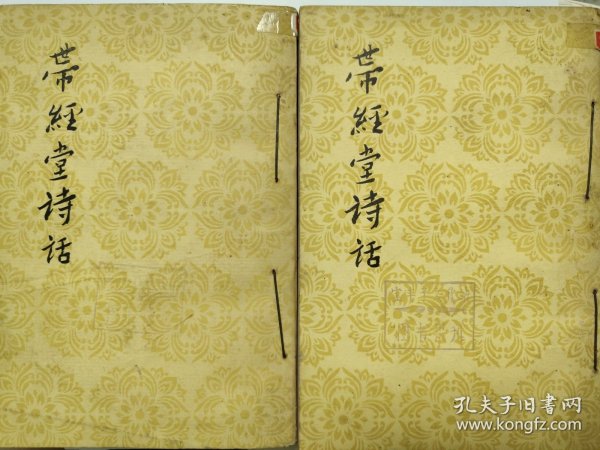 带經堂诗话
带經堂诗话
孔夫子旧书网
www.kongfz.com